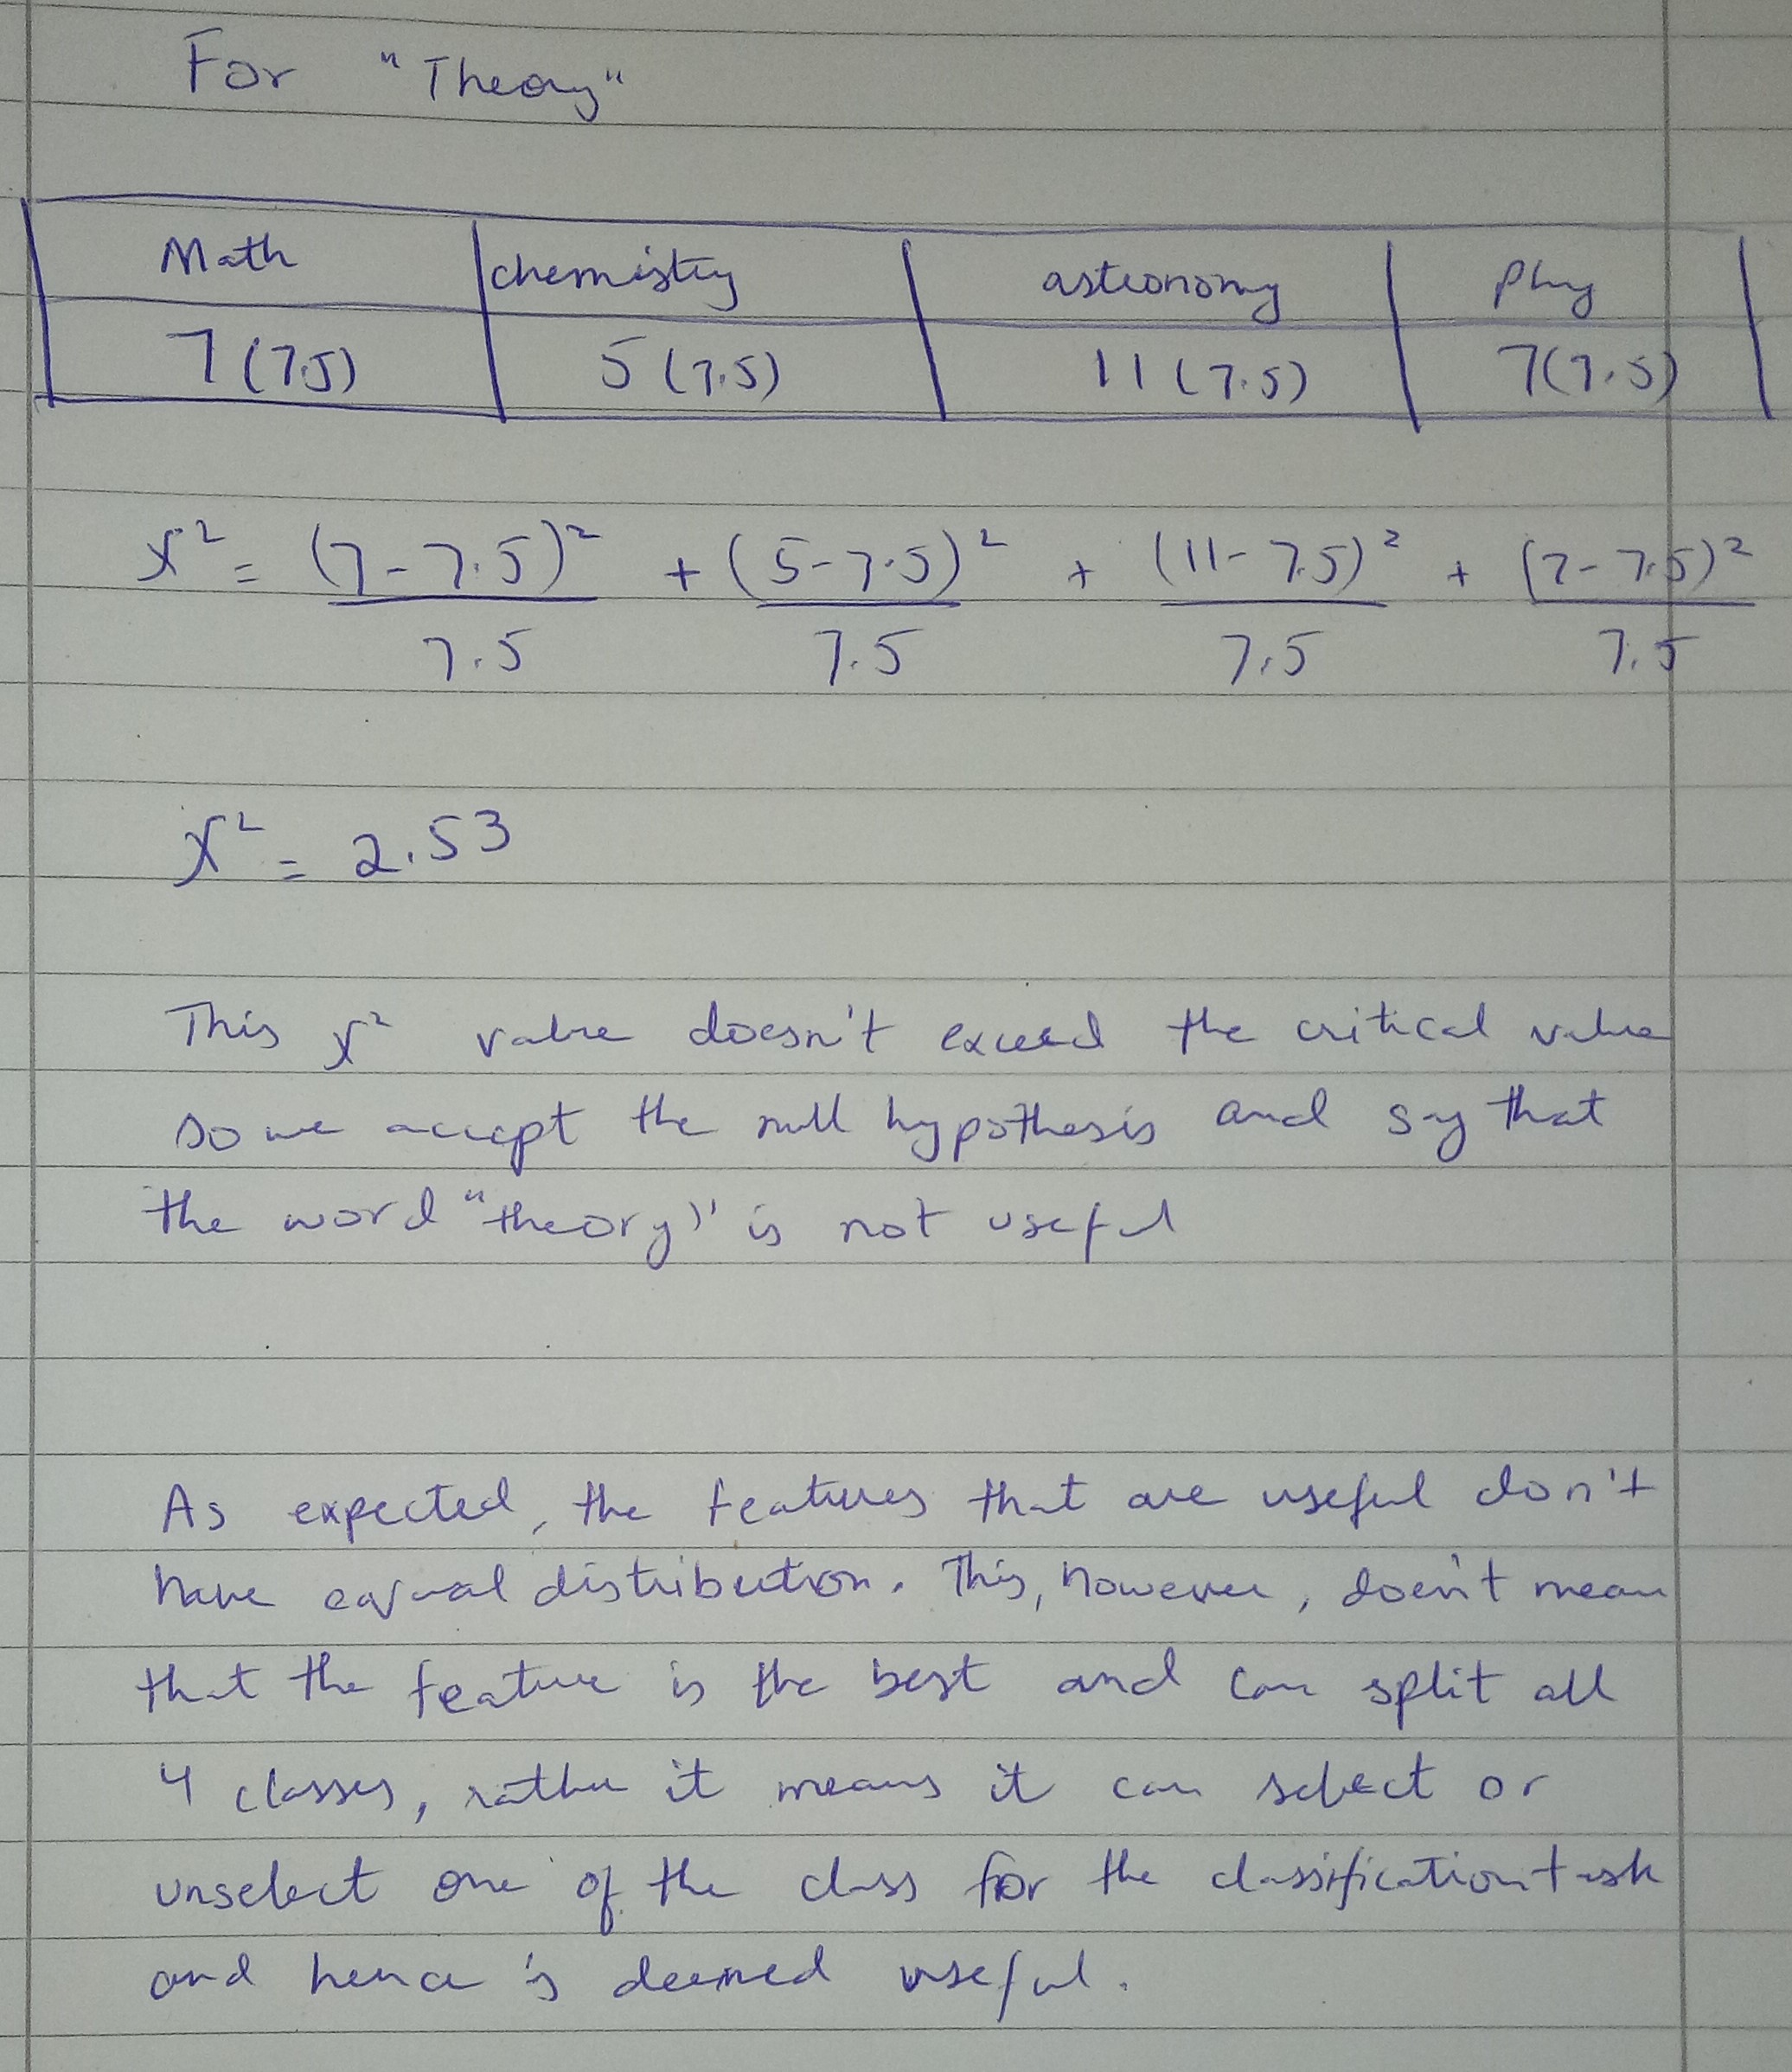 For "Theory"
Math chemistry astronomy phy
7 (7.5) 5 (7.5) 11 (7.5) 7(7.5)
χ² = (7-7.5)² + (5-7.5)² + (11-7.5)² + (7-7.5)²
7.5 7.5 7.5 7.5
χ² = 2.53
This χ² value doesn't exceed the critical value
so we accept the null hypothesis and say that
the word "theory" is not useful
As expected, the features that are useful don't
have equal distribution. This, however, doesn't mean
that the feature is the best and can split all
4 classes, rather it means it can select or
unselect one of the class for the classification task
and hence is deemed useful.